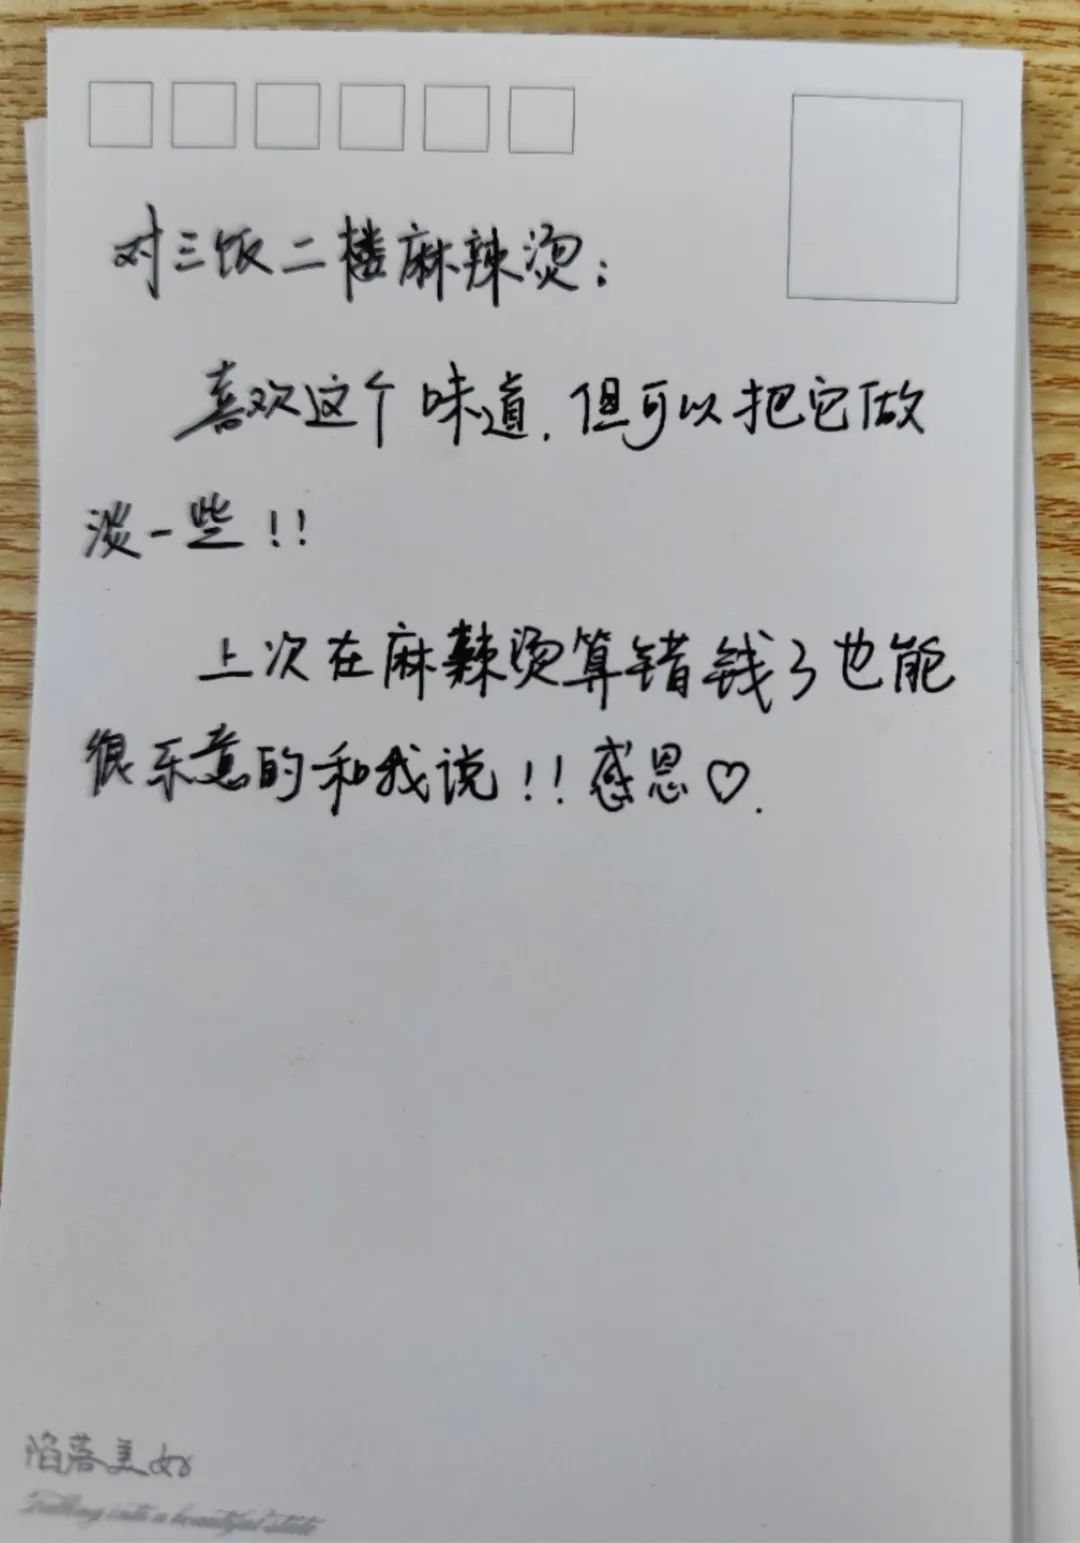 对三饭二楼麻辣烫：
喜欢这个味道，但可以把它做
淡一些！！
上次在麻辣烫算错钱了也能
很乐意的和我说！！感恩♡.
陷落美好
Falling into a beautiful state